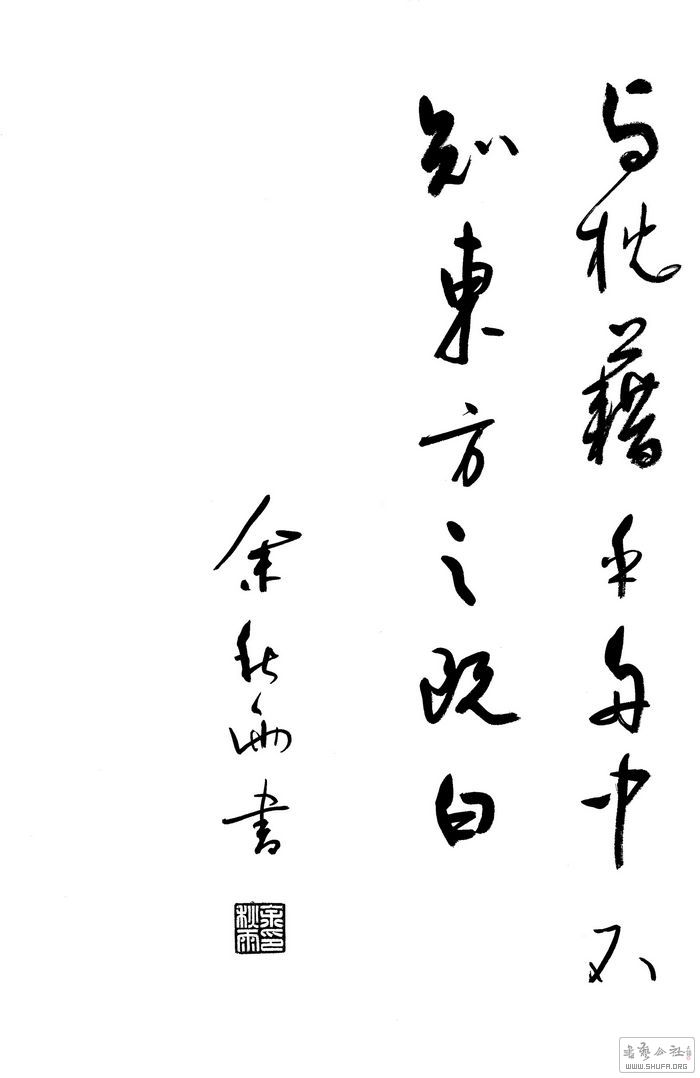 与枕藉乎舟中不
知東方之既白
余秋雨書
余秋雨印
書藝公社
WWW.SHUFA.ORG